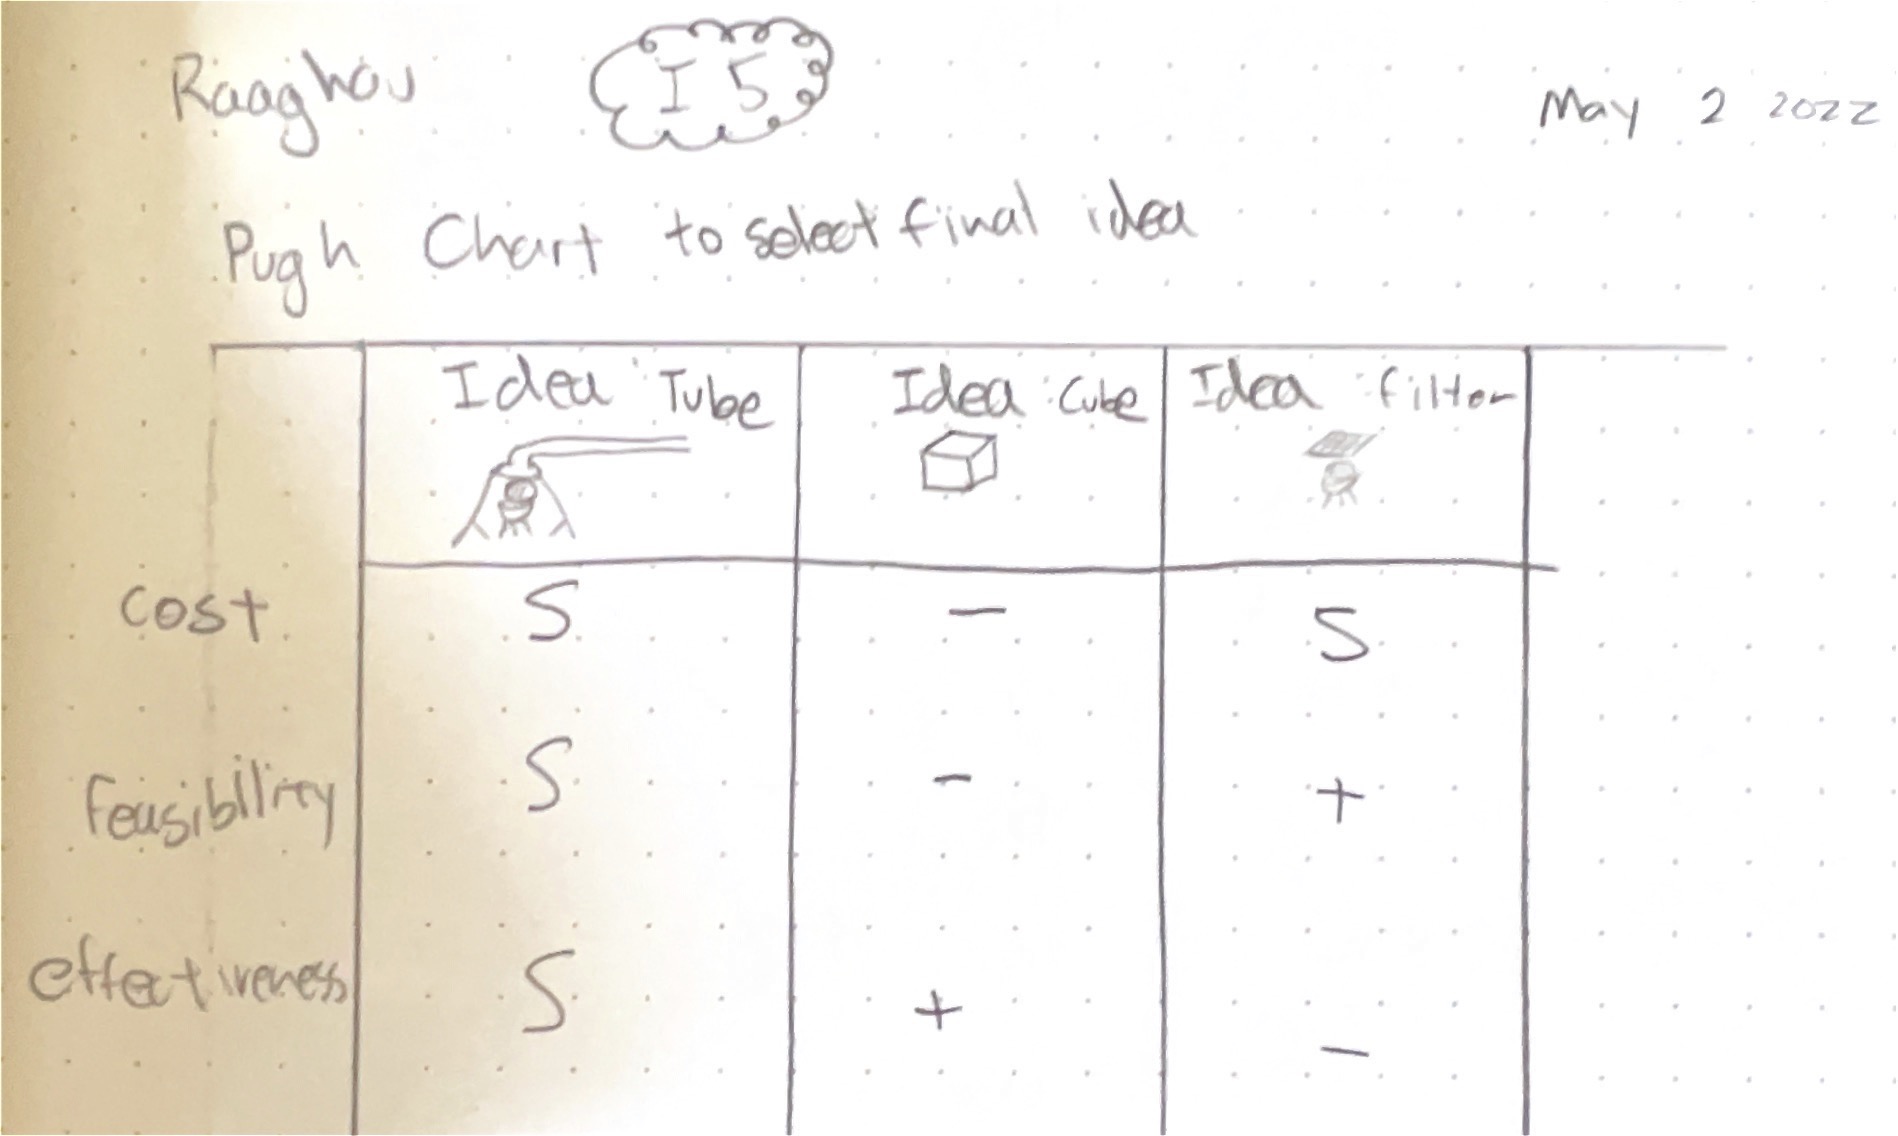 Raaghav I 5 May 2 2022
Pugh Chart to select final idea
Idea Tube Idea Cube Idea filter
Cost S - S
feasibility S - +
effectiveness S + -